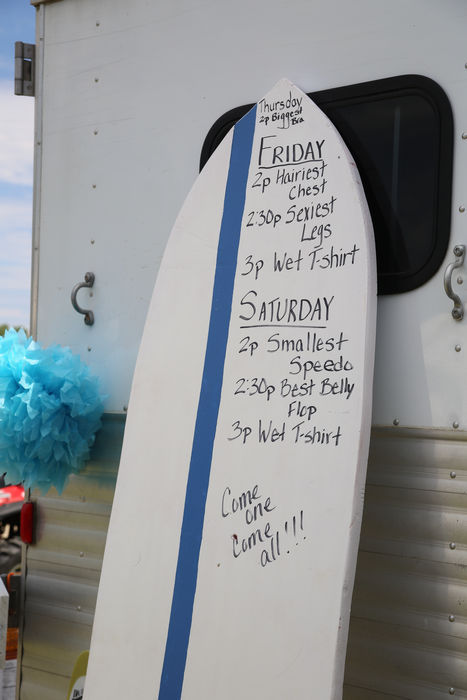 Thursday
2p Biggest
Bra
FRIDAY
2p Hairiest
Chest
2:30p Sexiest
Legs
3p Wet T-shirt
SATURDAY
2p Smallest
Speedo
2:30p Best Belly
Flop
3p Wet T-shirt
Come
one
Come
all!!!